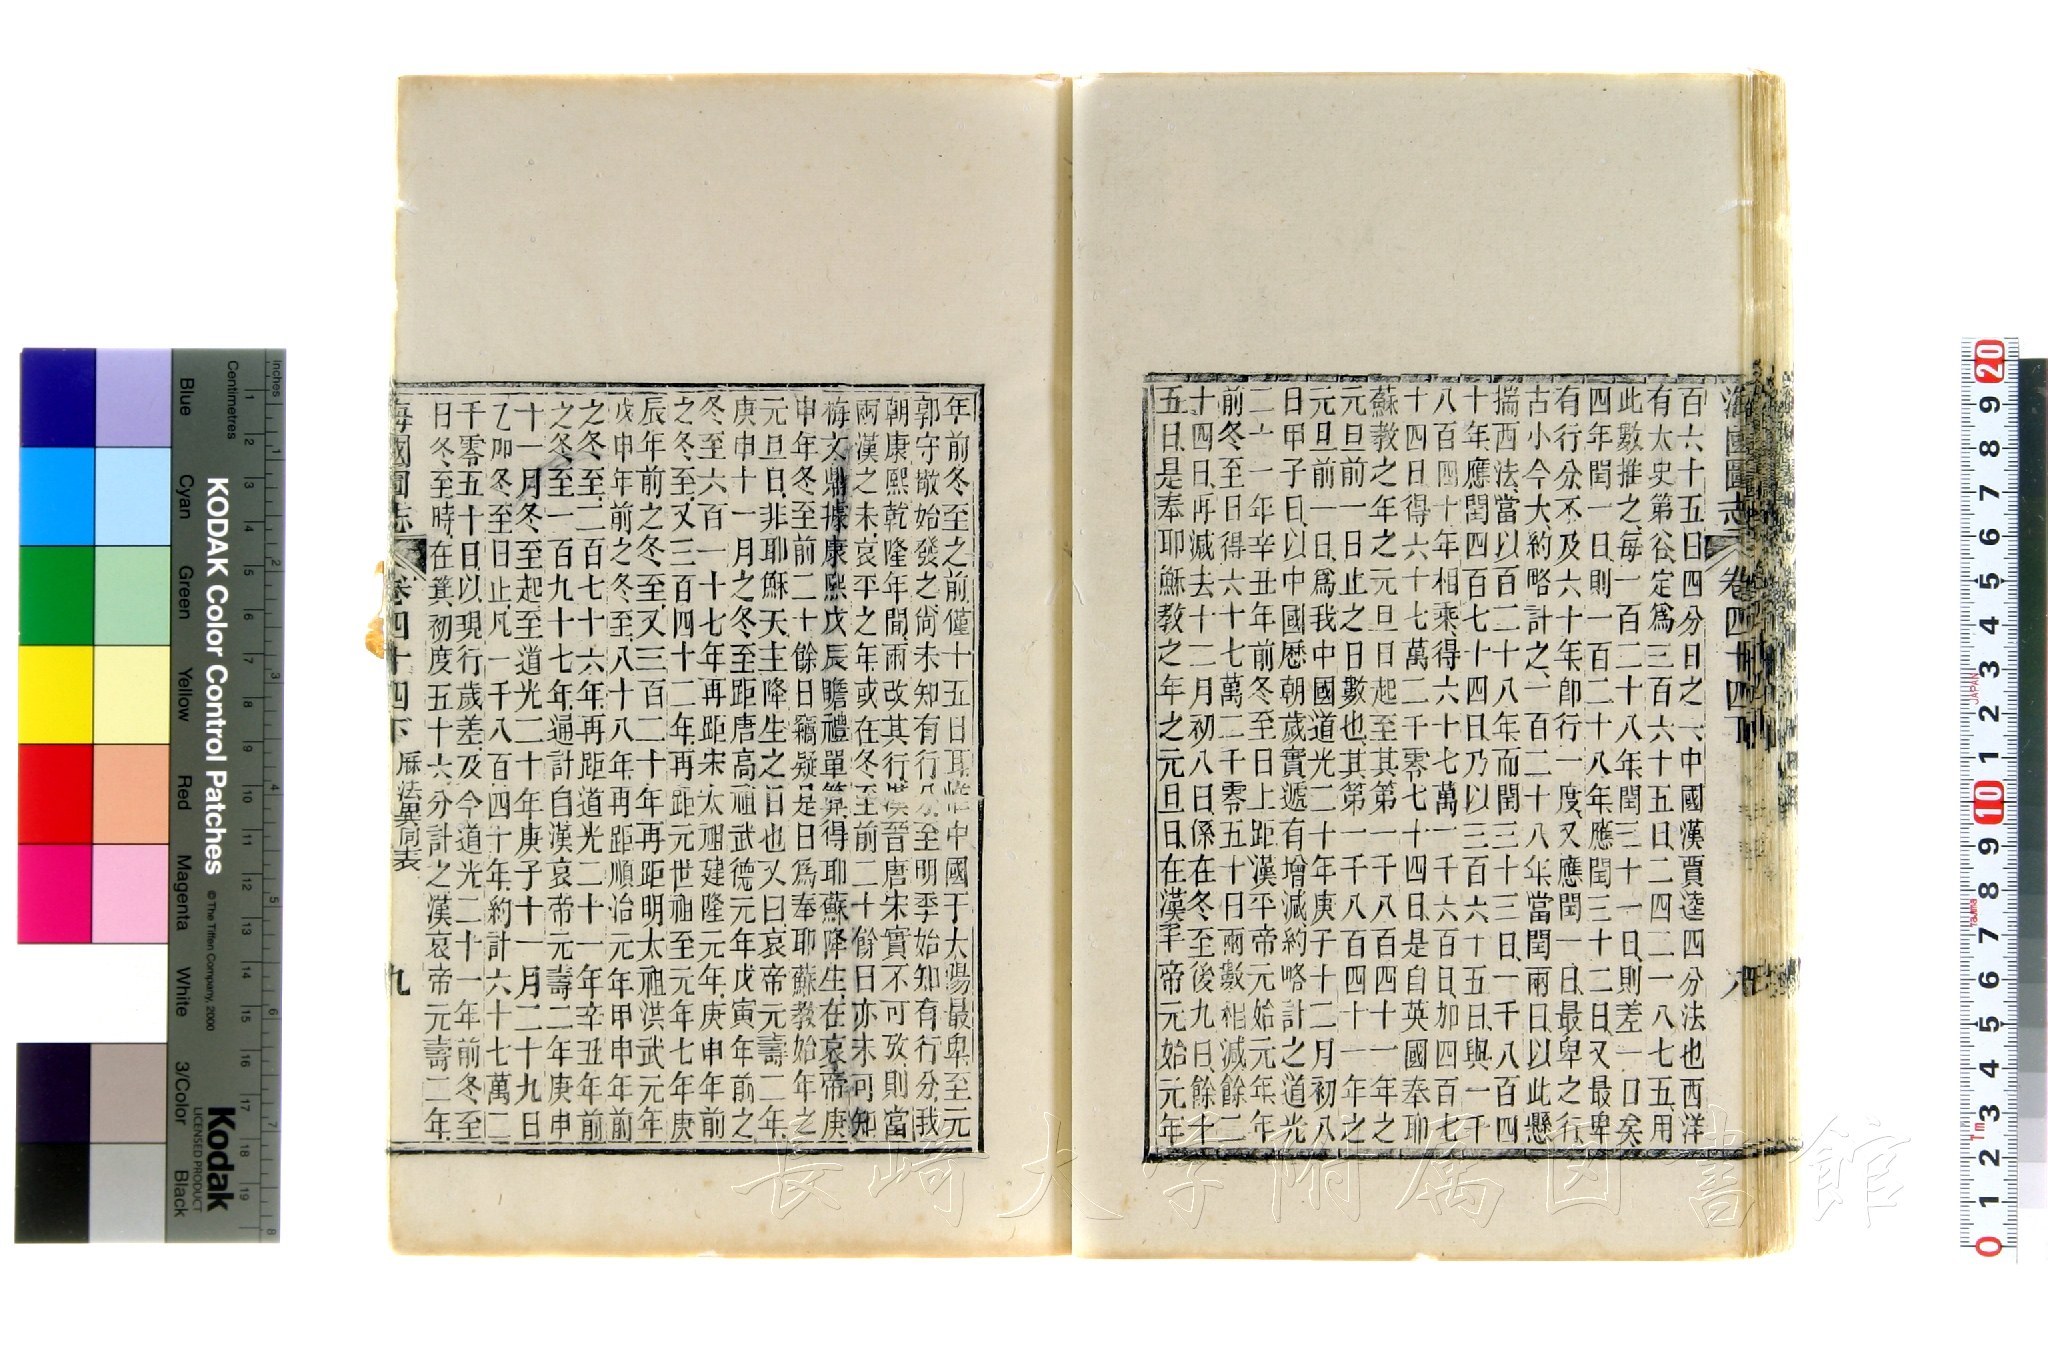 海國圖志 卷四十四下
百六十五日四分日之一、中國漢賈逵四分法也、西洋
有太史第谷定爲三百六十五日、二四二一八七五、用
此數推之、每一百二十八年、閏三十一日、則差一日矣
四年閏一日、則一百二十八年、應閏三十二日、又最卑
有行分、不及六十年、卽行一度、又應閏一日、最卑之行
古小今大、約略計之、一百二十八年、當閏兩日、以此懸
揣西法、當以百二十八年、而閏三十三日、一千八百四
十年、應閏四百七十四日、乃以三百六十五日、與一千
八百四十年相乘、得六十七萬一千六百日、加四百七
十四日、得六十七萬二千零七十四日、是自英國奉耶
蘇教之年之元旦日起至其第一千八百四十一年之
元旦前一日止之日數也、其第一千八百四十一年之
元旦前一日、爲我中國道光二十年庚子十二月初八
日甲子日、以中國歷朝歲實遞有增減、約略計之、道光
二十一年辛丑年前冬至日、上距漢平帝元始元年年
前冬至日、得六十七萬二千零五十日、兩數相減、餘二
十四日、再減去十二月初八日、係在冬至後九日、餘十
五日、是奉耶穌教之年之元旦日、在漢平帝元始元年
年前冬至之前、僅十五日耳、惟中國于太陽最卑、至元
郭守敬始發之、尚未知有行分、至明季始知有行分、我
朝康熙乾隆年間、兩改其行、漢晉唐宋、實不可攷、則當
兩漢之末、哀平之年、或在冬至前二十餘日、亦未可知
梅文鼎據康熙戊辰瞻禮單、算得耶蘇降生、在哀帝庚
申年冬至前二十餘日、竊疑是日爲奉耶蘇教始年之
元旦日、非耶穌天主降生之日也、又曰哀帝元壽二年
庚申十一月之冬至、距唐高祖武德元年戊寅年前之
冬至、六百一十七年、再距宋太祖建隆元年庚申年前
之冬至、又三百四十二年、再距元世祖至元年七年庚
辰年前之冬至、又三百二十年、再距明太祖洪武元年
戊申年前之冬至、八十八年、再距順治元年甲申年前
之冬至、二百七十六年、再距道光二十一年辛丑年前
之冬至、一百九十七年、通計自漢哀帝元壽二年庚申
十一月冬至起、至道光二十年庚子十一月二十九日
乙卯冬至日止、凡一千八百四十年、約計六十七萬二
千零五十日、以現行歲差、及今道光二十一年前冬至
日冬至時、在箕初度五十六分計之、漢哀帝元壽二年
海國圖志 卷四十四下 厤法異同表 九
長崎大学附属図書館
KODAK Color Control Patches
© The Tiffen Company, 2000
Kodak
LICENSED PRODUCT
Inches
Centimetres
Blue
Cyan
Green
Yellow
Red
Magenta
White
3/Color
Black